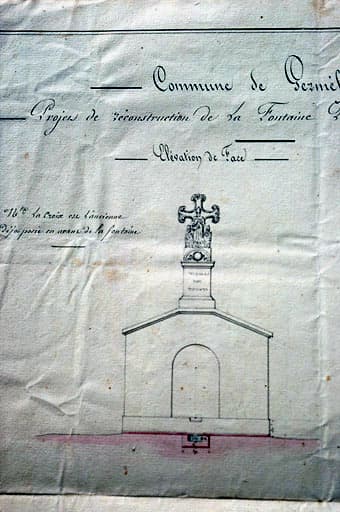 Commune de Germél
Projet de reconstruction de La Fontaine
Elévation de Face
La Croix est l'ancienne
déja posée en avant de la fontaine